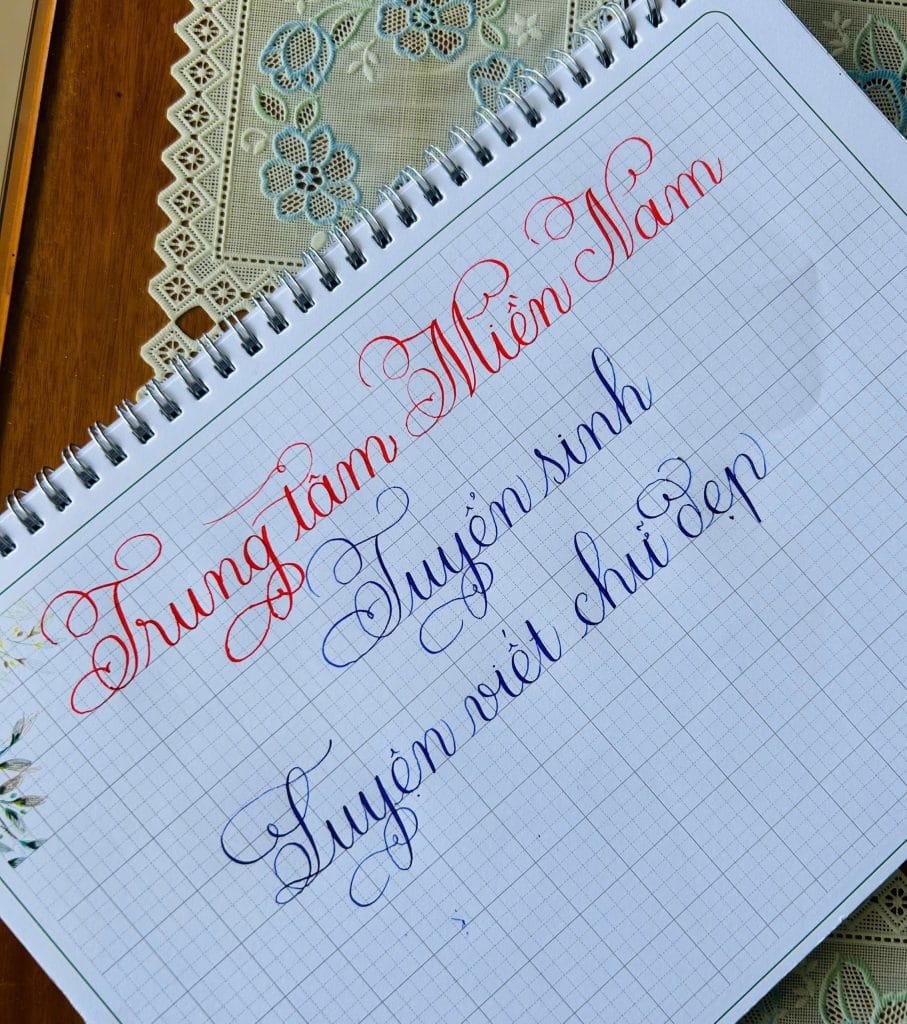 Trung tâm Miền Nam
Tuyển sinh
Luyện viết chữ đẹp